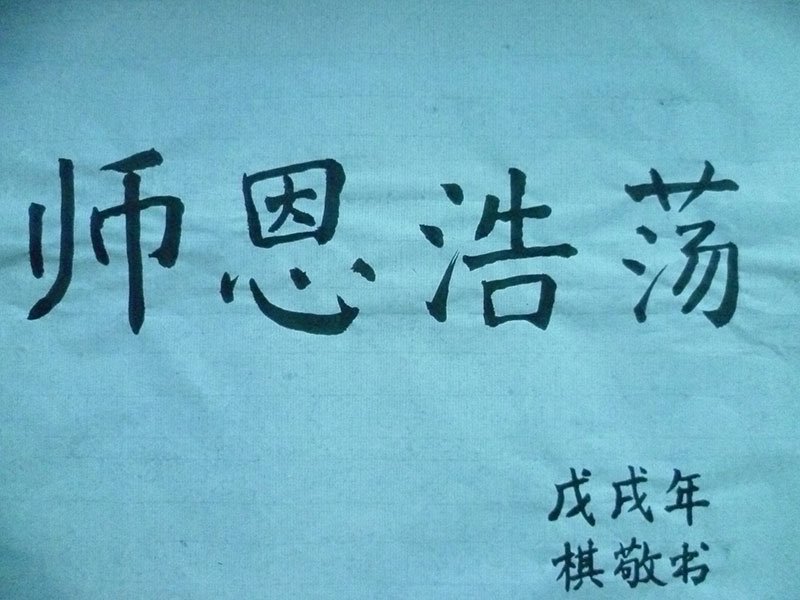 师恩浩荡
戊戌年
棋敬书